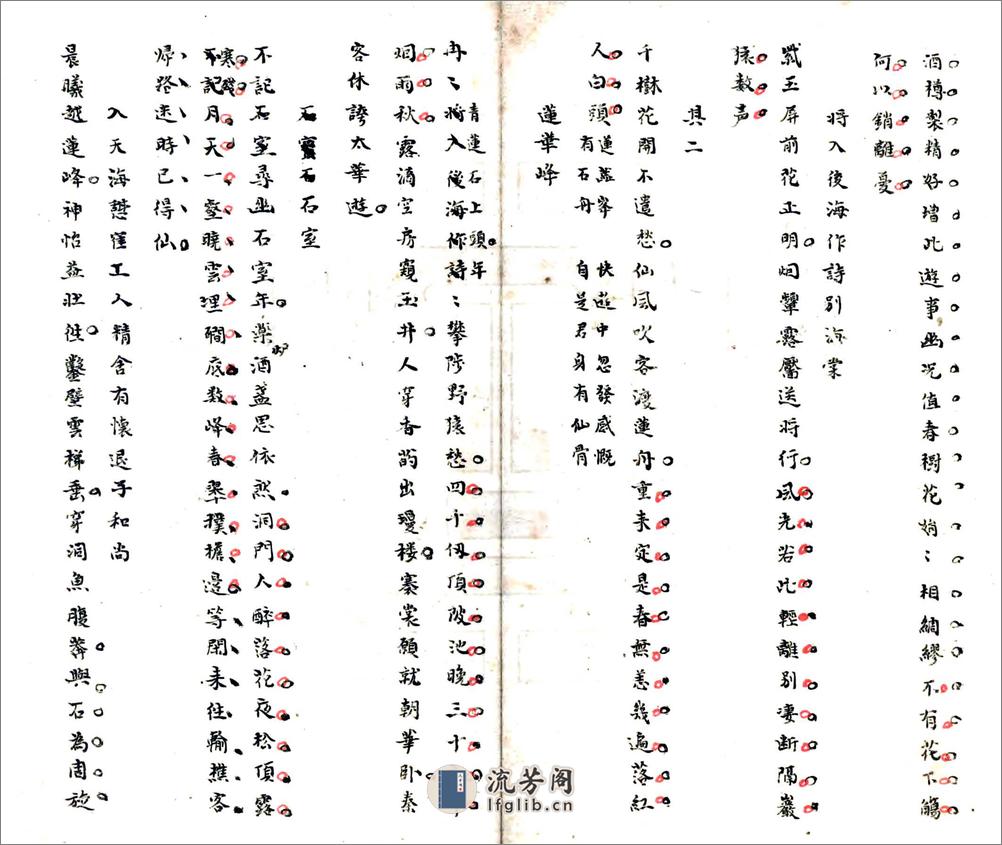 酒樽製精好增此遊事幽況值春樹花嬌〻相綢繆不有花下觴
何以銷離憂
將入後海作詩別海棠
紫玉屏前花正明烟顰露靨送將行風光若此輕離別凄断隔巖
猿数声
其二
千樹花開不遣愁仙風吹客渡蓮舟重来定是春無恙幾遍落紅
人白頭
蓮蕊峯
有石舟
快遊中忽發感慨
自是君身有仙骨
蓮華峰
青蓮石上頭年
冉〻將入後海作詩〻攀陟野猿愁四十仭頂陂池晚三十
烟雨秋露滴空房窺玉井人穿香菂出瓊楼褰裳願就朝華卧秦
客休誇太華遊
石室
不記石室尋幽石室年藥酒盞思依然洞門人醉落花夜松頂露
寒
不記月天一壑曉雲埋磵底数峰春翠撲檐邊等閒来往輸樵客
歸路迷時已得仙
入天海憇窪工人精舍有懷退予和尚
晨曦越蓮峰神怡益壯往鑿壁雲梯垂穿洞魚腹莽與石為周旋
流芳阁
lfglib.cn